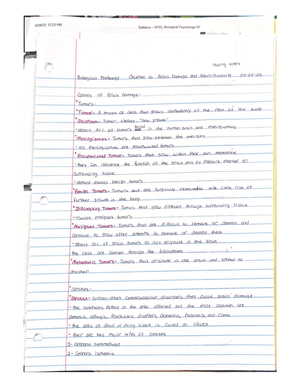 Syllabus - SP23_Biological Psychology 02
Biological Psychology Chapter 10 Brain Damage and Neuroplasticity
Causes of Brain Damage:
*Tumors:
*Tumor: A mass of cells that grows independently of the rest of the body
*Neoplasm: Tumor, literally, "new growth"
- about 20% of tumors found in the human brain are meningiomas
*Meningiomas: Tumors that grow between the meninges
- All meningiomas are encapsulated tumors
*Encapsulated Tumors: Tumors that grow within their own membrane
- they can influence the function of the brain only by pressure exerted on
surrounding tissue
- almost always benign tumors
*Benign Tumors: Tumors that are surgically removable with little risk of
further growth in the body
*Infiltrating Tumors: Tumors that grow diffusely through surrounding tissue
- usually malignant tumors
*Malignant Tumors: Tumors that are difficult to remove or destroy and
continue to grow after attempts to remove or destroy them
- about 10% of brain tumors do not originate in the brain
the cells are carried through the bloodstream
*Metastatic Tumors: Tumors that originate in one organ and spread to
another
*Strokes:
*Strokes: sudden-onset cerebrovascular disorders that cause brain damage
- the symptoms depend on the area affected but the most common are
amnesia, aphasia, Psychiatric disorders, dementia, Paralysis, and coma
- the area of dead or dying tissue is called an infarct
- there are two major types of strokes
1- cerebral hemorrhage
2- cerebral ischemia